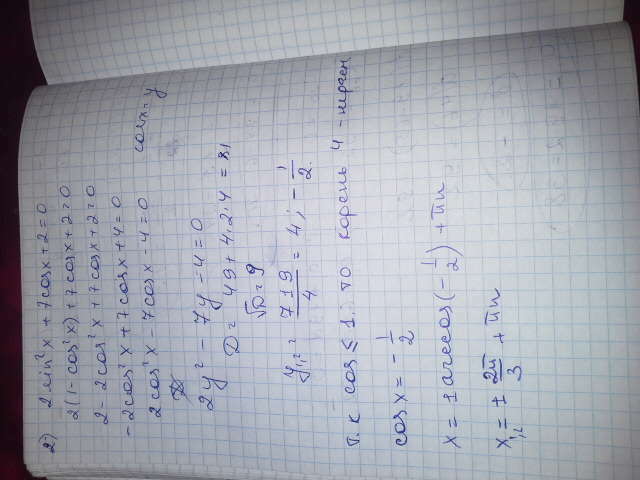 2) 2sin²x + 7cosx + 2 = 0
2(1 - cos²x) + 7cosx + 2 = 0
2 - 2cos²x + 7cosx + 2 = 0
- 2cos²x + 7cosx + 4 = 0
2cos²x - 7cosx - 4 = 0 cosx = y
2y² - 7y - 4 = 0
D = 49 + 4·2·4 = 81
√D = 9
y₁,₂ = (7 ± 9)/4 = 4; -1/2.
т. к cos ≤ 1. то корень 4 -
cosx = -1/2
x = ± arccos(-1/2) + πn
x₁,₂ = ± 2π/3 + πn